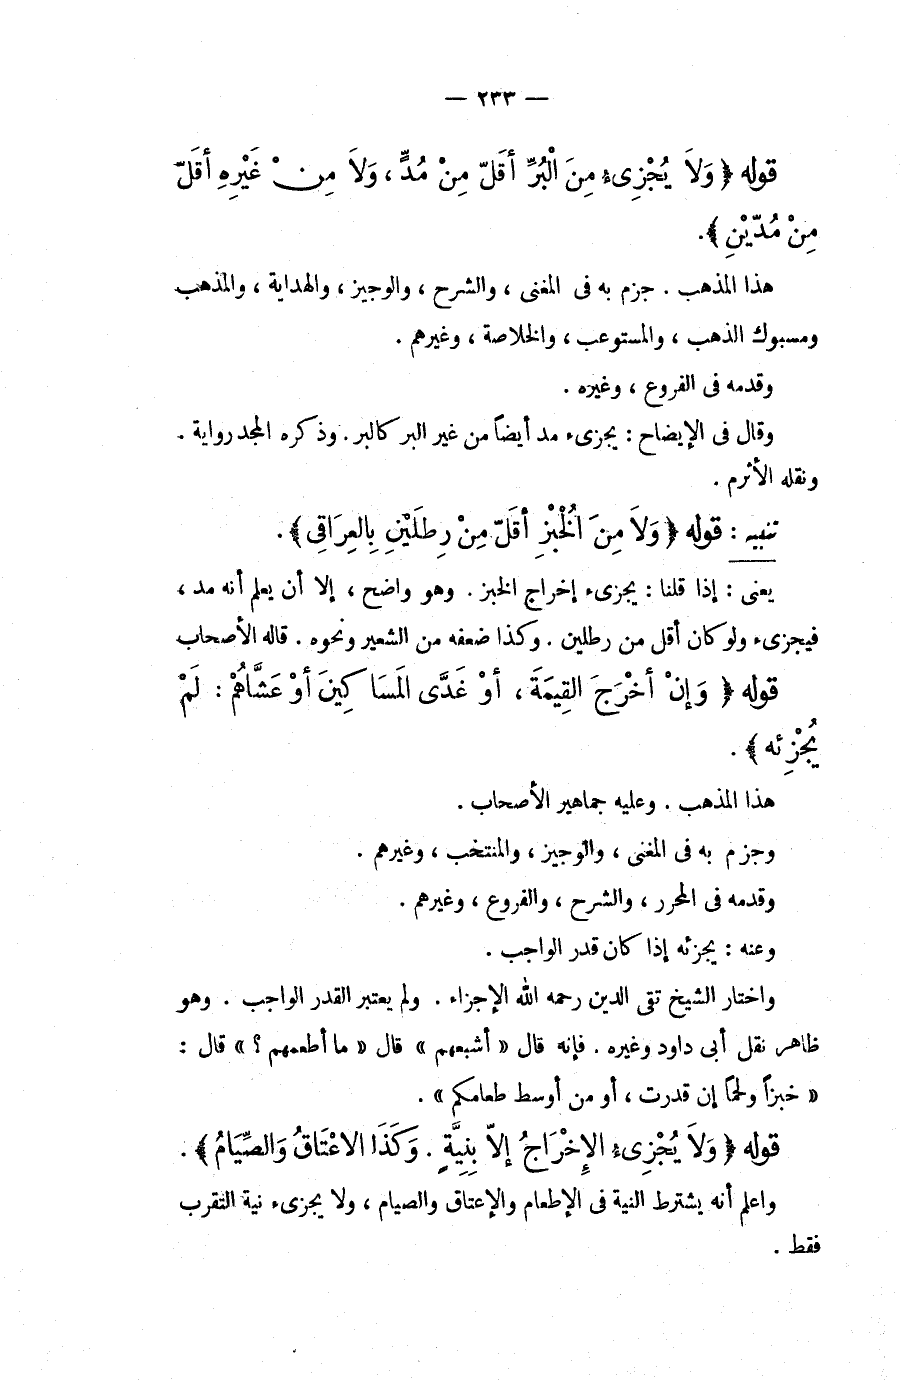 — ٢٣٣ —
قوله ﴿ وَلاَ يُجْزِىء مِنَ الْبُرِّ أَقَلّ مِنْ مُدٍّ ، وَلاَ مِنْ غَيْرِهِ أَقَلّ
مِنْ مُدّيْنِ ﴾.
هذا المذهب . جزم به فى المغنى ، والشرح ، والوجيز ، والهداية ، والمذهب
ومسبوك الذهب ، والمستوعب ، والخلاصة ، وغيرهم .
وقدمه فى الفروع ، وغيره .
وقال فى الإيضاح : يجزىء مد أيضاً من غير البر كالبر . وذكره المجد رواية .
ونقله الأثرم .
تنبيه : قوله ﴿ وَلاَ مِنَ الْخُبْزِ أَقَلّ مِنْ رِطلَيْنِ بِالعِرَاقِى ﴾ .
يعنى : إذا قلنا : يجزىء إخراج الخبز . وهو واضح ، إلا أن يعلم أنه مد ،
فيجزىء ولو كان أقل من رطلين . وكذا ضعفه من الشعير ونحوه . قاله الأصحاب
قوله ﴿ وَإِنْ أَخْرَجَ القِيمَةَ ، أَوْ غَدَّى المَسَاكِينَ أَوْ عَشَّاهُمْ : لَمْ
يُجْزِئه ﴾ .
هذا المذهب . وعليه جماهير الأصحاب .
وجزم به فى المغنى ، والوجيز ، والمنتخب ، وغيرهم .
وقدمه فى المحرر ، والشرح ، والفروع ، وغيرهم .
وعنه : يجزئه إذا كان قدر الواجب .
واختار الشيخ تقى الدين رحمه الله الإجزاء . ولم يعتبر القدر الواجب . وهو
ظاهر نقل أبى داود وغيره . فإنه قال « أشبعهم » قال « ما أطعمهم ؟ » قال :
« خبزاً ولحماً إن قدرت ، أو من أوسط طعامكم » .
قوله ﴿ وَلاَ يُجْزِىء الإِخْرَاجُ إلاّ بِنِيَّةٍ . وَكَذَا الاعْتَاقُ وَالصِّيَامُ ﴾ .
واعلم أنه يشترط النية فى الإطعام والإعتاق والصيام ، ولا يجزىء نية التقرب
فقط .